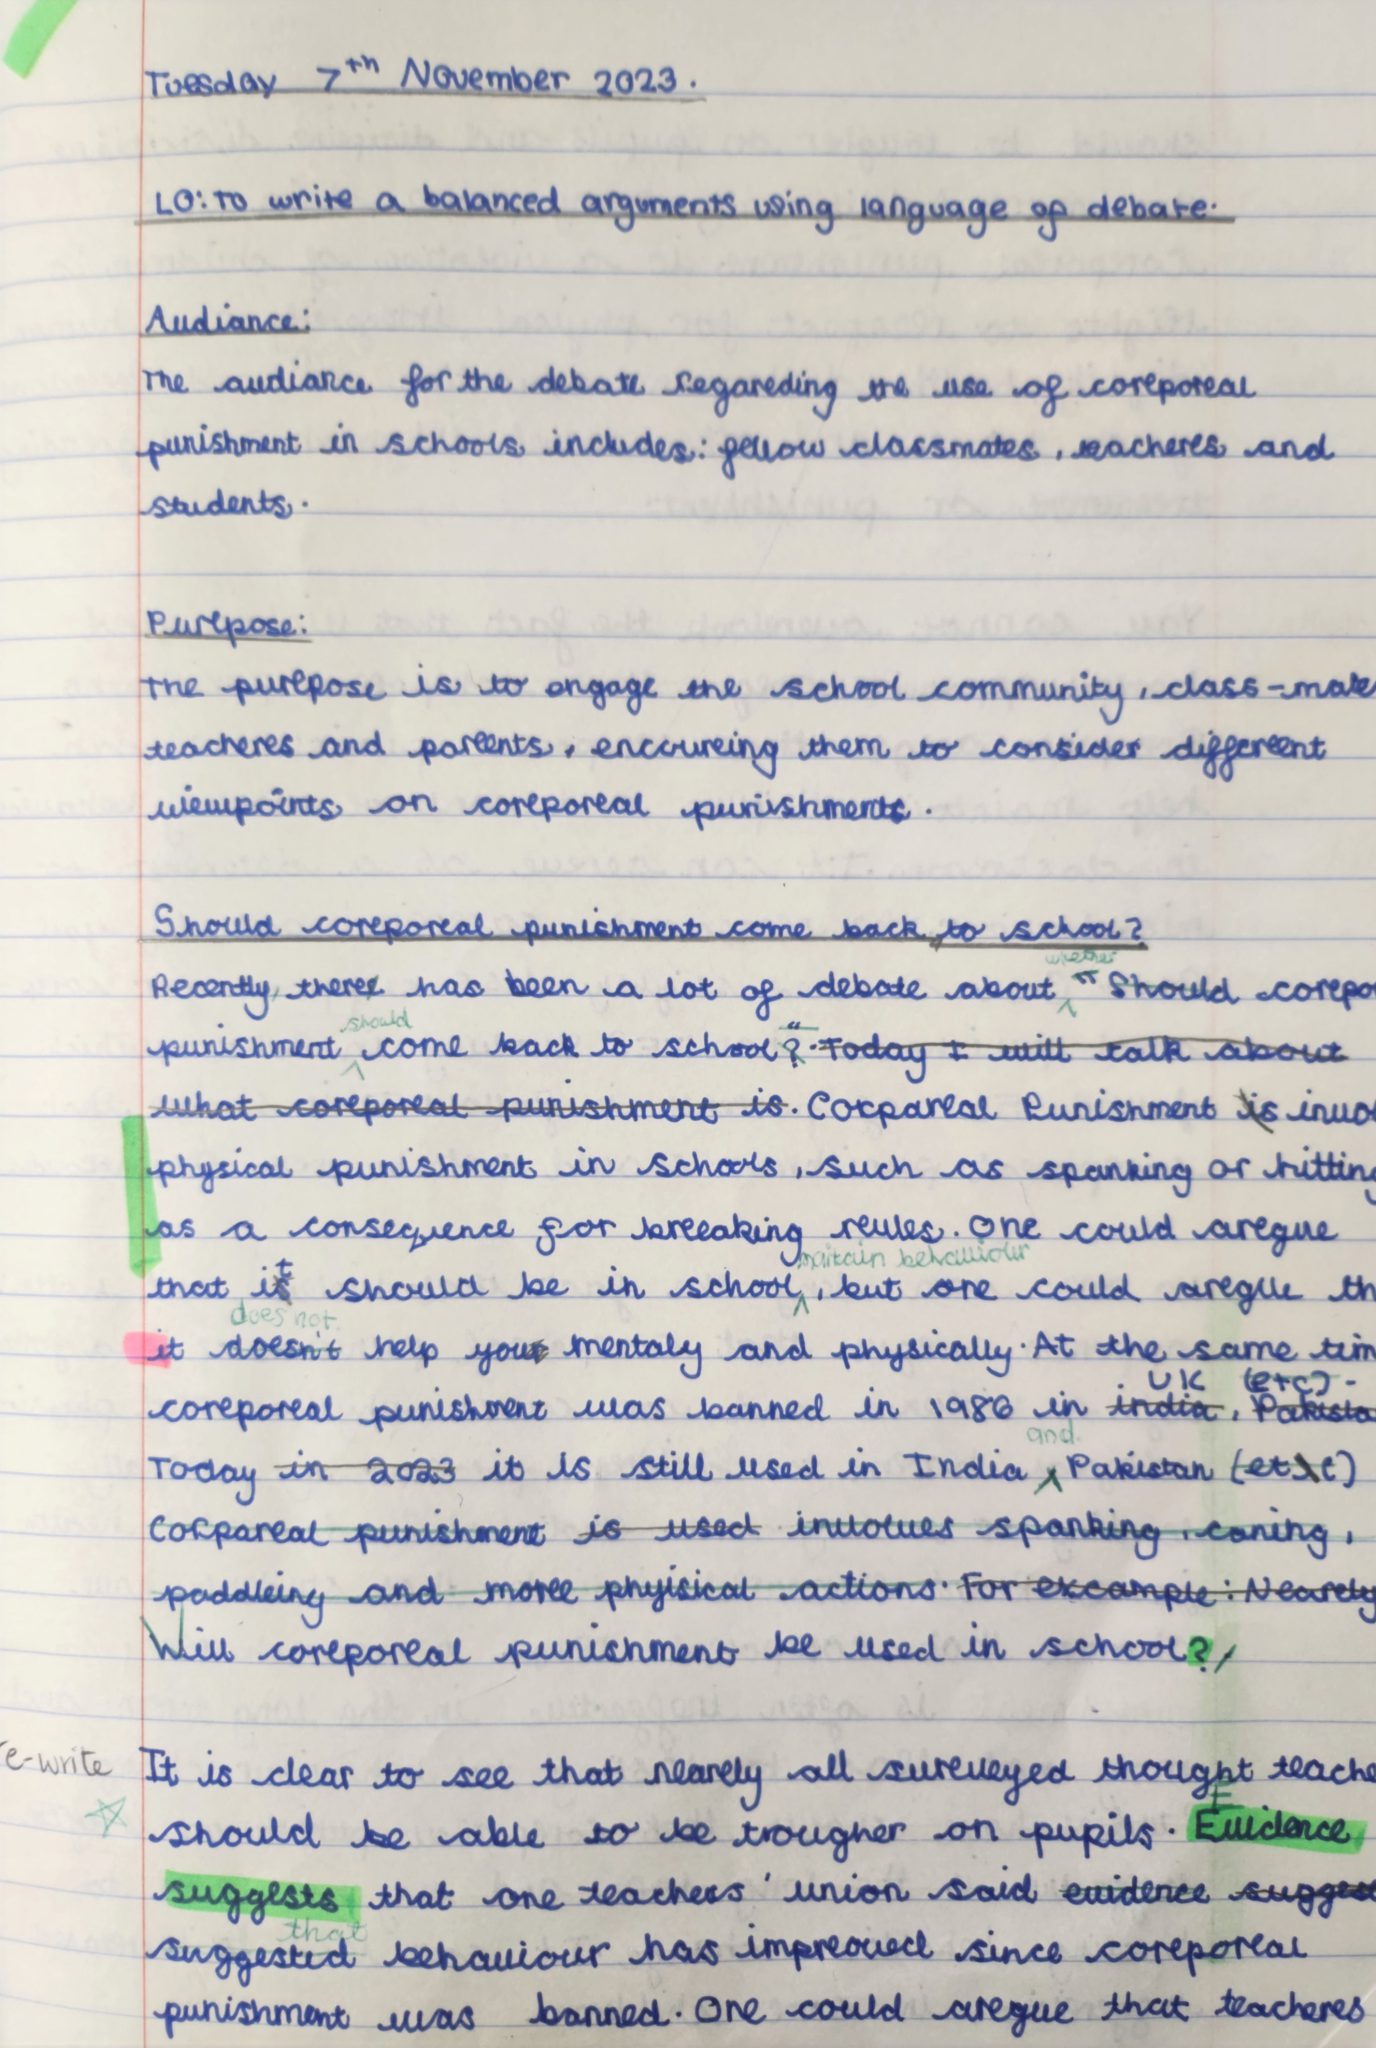 Tuesday 7th November 2023.
LO: To write a balanced arguments using language of debate.
Audiance:
The audiance for the debate regareding the use of coreporeal
punishment in schools includes: fellow classmates, teacheres and
students.
Purepose:
The purepose is to engage the school community, class-mate
teacheres and parents, encoureing them to consider differeent
viewpoints on coreporeal punishments.
Should coreporeal punishment come back to school?
whether
Recently, there has been a lot of debate about " Should corepo
should
punishment come back to school?" Today I will talk about
what coreporeal punishment is. Corpareal Punishment is invol
physical punishment in schools, such as spanking or hitting
as a consequence for breeaking reules. One could aregue
maitain behaviour
that it should be in school, but one could aregue th
does not
it doesn't help you mentaly and physically. At the same tim
UK (etc).
coreporeal punishment was banned in 1986 in india, Pakista
and
Today in 2023 it is still used in India Pakistan (etc)
Corpareal punishment is used involves spanking, caning,
paddleing and moree phyisical actions. For excample: Nearely
Will coreporeal punishment be used in school?
e-write It is clear to see that nearely all sureveyed thought teache
should be able to be trougher on pupils. Evidence
suggests that one teachers' union said evidence sugges
that
suggested behaviour has impreoved since coreporeal
punishment was banned. One could aregue that teacheres